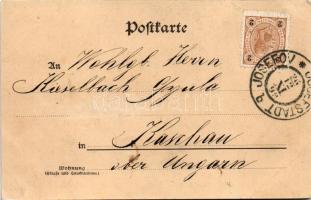 Postkarte
An Wohlgb. Herrn
Kaselbach Gyula
in Kaschau
ober Ungarn
Wohnung
(Straße und Hausnummer)
JOSEFOV
JOSEFSTADT
2
2